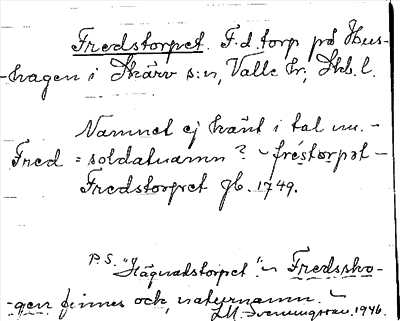 Fredstorpet. F.d. torp på Hus-
-hagen i Skärv s:n, Valle hr, Skb. l.
Namnet ej känt i tal nu. -
Fred = soldatnamn? - fréstorpet -
Fredstorpet gb. 1749.
P.S. "Hägnadstorpet". - Fredssko-
-gen finnes och, naturnamn. -
L.M. Svenungsson. 1946.